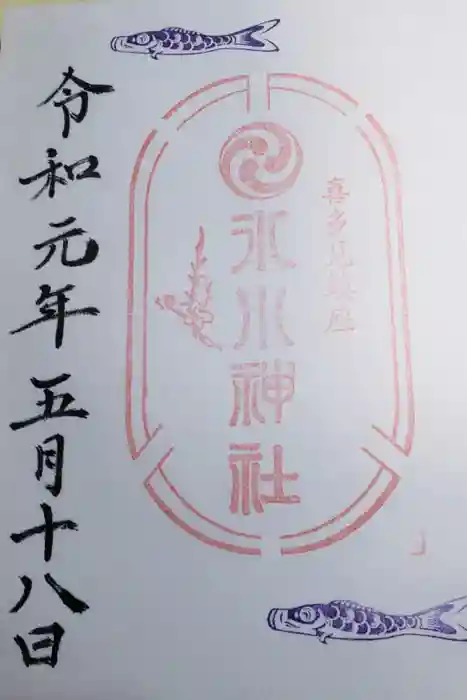 喜多見鎮座
氷川神社
令和元年五月十八日